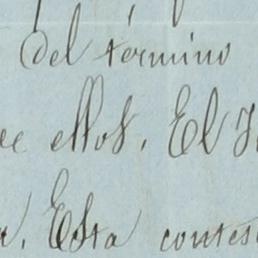 del término
ellos. El
. Esta contes